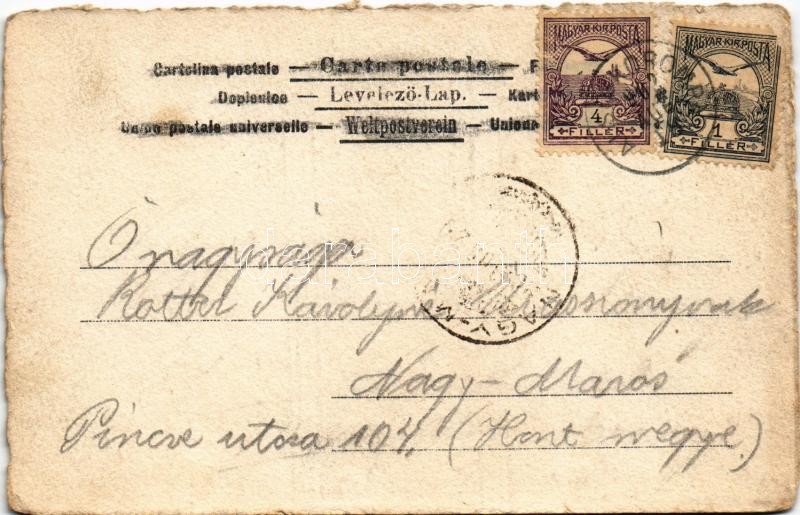 Cartolina postale — Carte postale —
Dopisnice — Levelező-Lap. — Kart
Union postale universelle — Weltpostverein — Union
MAGYAR·KIR·POSTA
4
FILLÉR
MAGYAR·KIR·POSTA
1
FILLÉR
NAGY-M
Ő nagysága
Károlyné
Nagy-Maros
Pincze utcza 104, (Hont megye.)